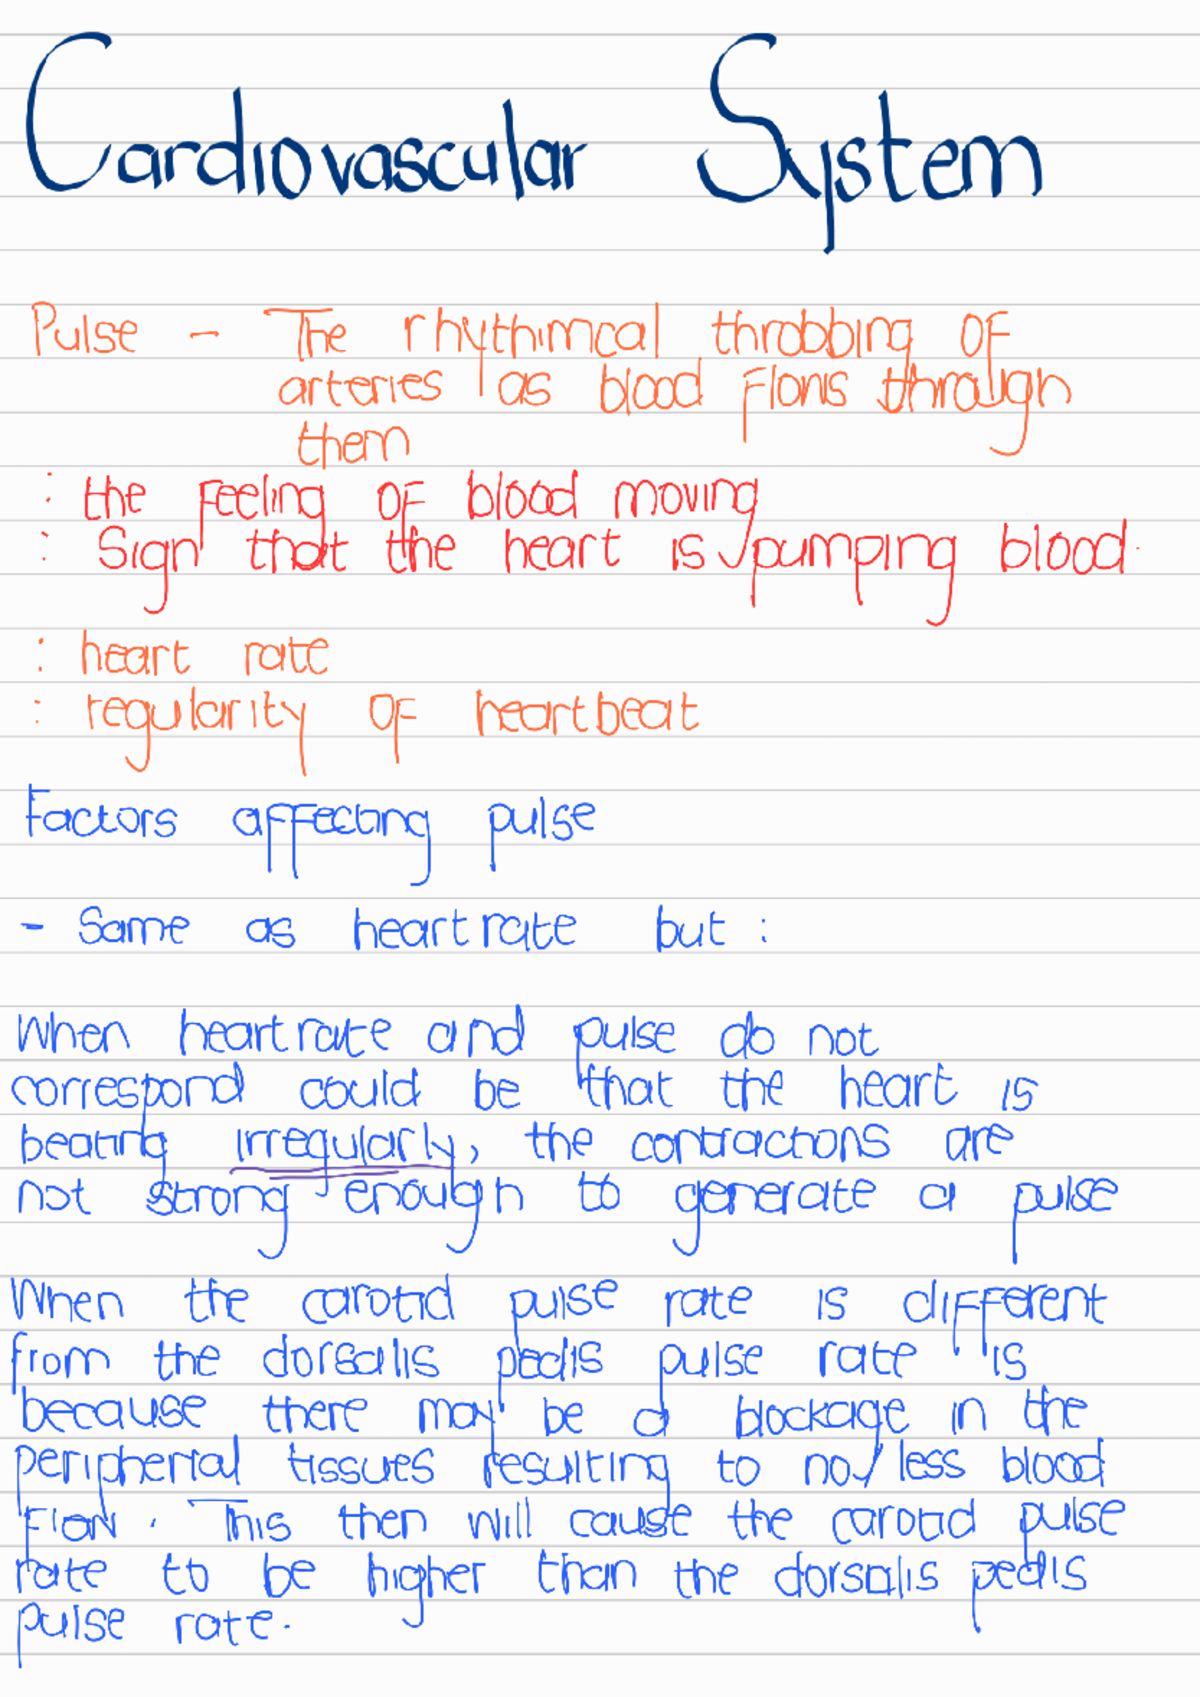 Cardiovascular System
Pulse - The rhythimcal throbbing of
arteries as blood flows through
them
: the feeling of blood moving
: Sign that the heart is pumping blood.
: heart rate
: regularity of heartbeat
Factors affecting pulse
- Same as heartrate but :
When heartrate and pulse do not
correspond could be that the heart is
beating irregularly, the contractions are
not strong enough to generate a pulse
When the carotid pulse rate is different
from the dorsalis pedis pulse rate is
because there may be a blockage in the
peripherial tissues resulting to no/less blood
flow. This then will cause the carotid pulse
rate to be higher than the dorsalis pedis
pulse rate.